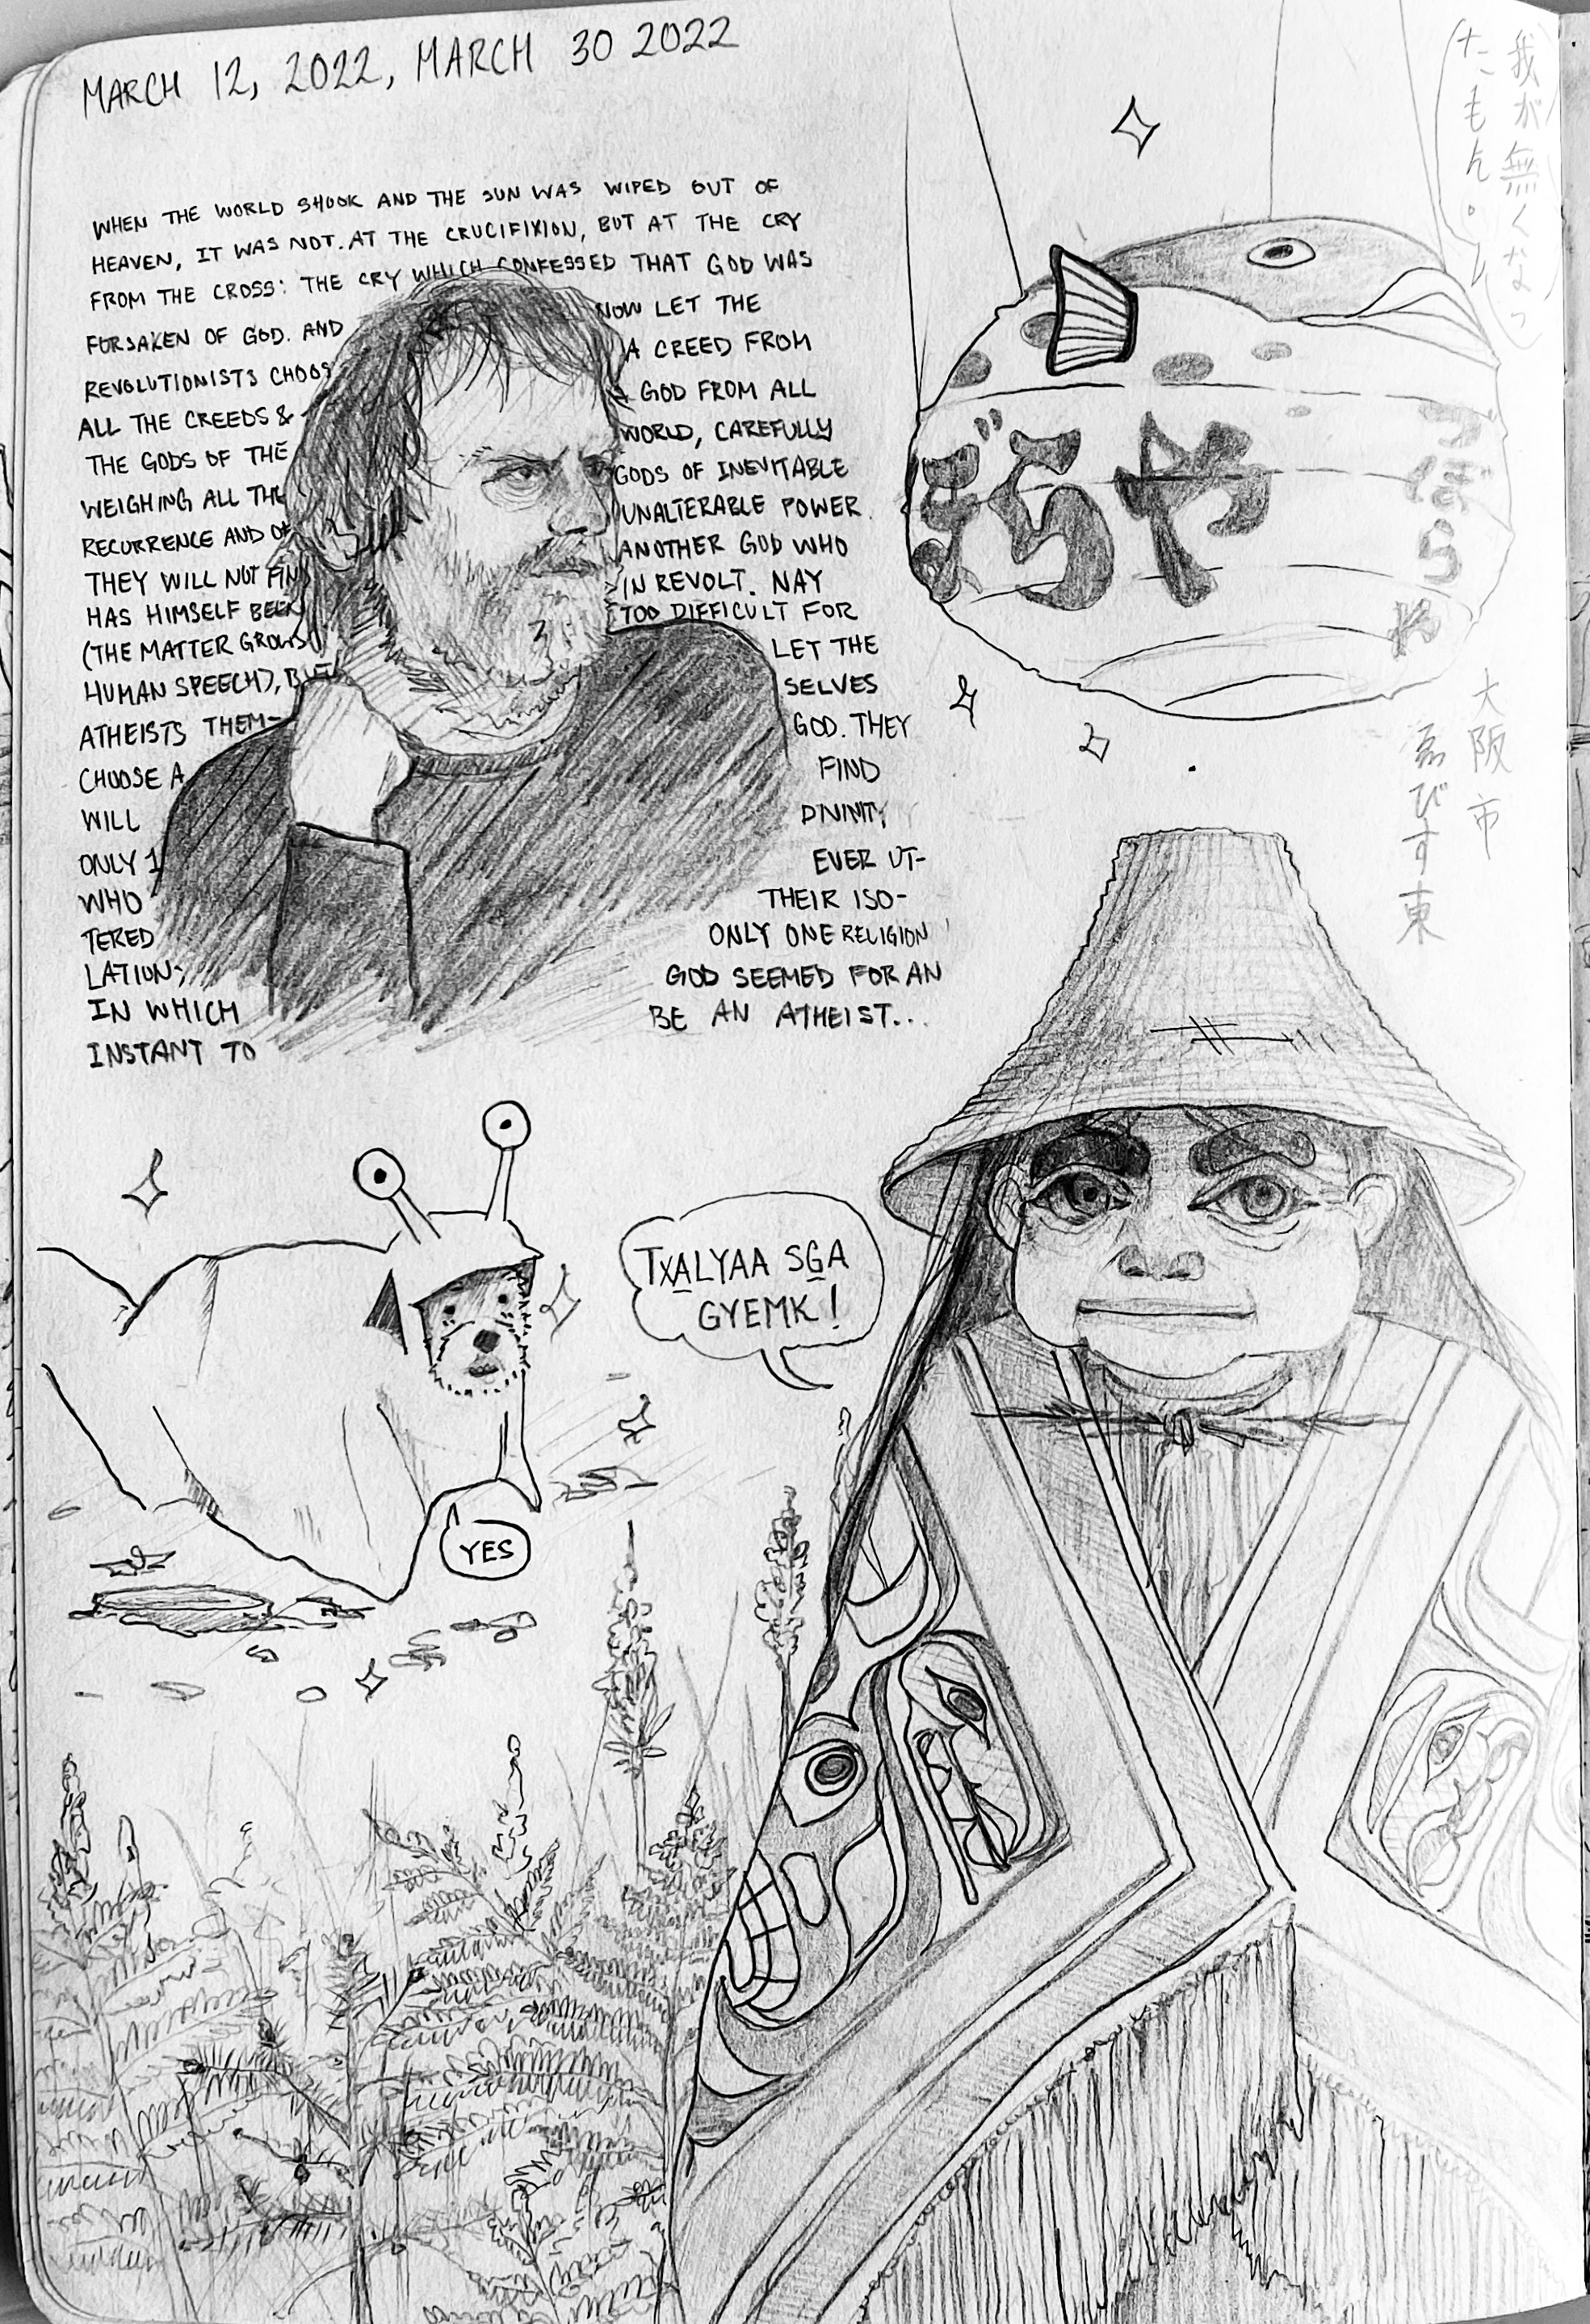 MARCH 12, 2022, MARCH 30 2022
WHEN THE WORLD SHOOK AND THE SUN WAS WIPED OUT OF
HEAVEN, IT WAS NOT. AT THE CRUCIFIXION, BUT AT THE CRY
FROM THE CROSS: THE CRY WHICH CONFESSED THAT GOD WAS
FORSAKEN OF GOD. AND NOW LET THE
REVOLUTIONISTS CHOOSE A CREED FROM
ALL THE CREEDS & A GOD FROM ALL
THE GODS OF THE WORLD, CAREFULLY
WEIGHING ALL THE GODS OF INEVITABLE
RECURRENCE AND OF UNALTERABLE POWER.
THEY WILL NOT FIND ANOTHER GOD WHO
HAS HIMSELF BEEN IN REVOLT. NAY
(THE MATTER GROWS TOO DIFFICULT FOR
HUMAN SPEECH), BUT LET THE
ATHEISTS THEM- SELVES
CHOOSE A GOD. THEY
WILL FIND
ONLY 1 DIVINITY
WHO EVER UT-
TERED THEIR ISO-
LATION; ONLY ONE RELIGION
IN WHICH GOD SEEMED FOR AN
INSTANT TO BE AN ATHEIST...
我が無くなっ
たもん。
ぼらや
づぼらや
大阪市
恵びす東
TXA̲LYAA SG̲A
GYEMK!
YES